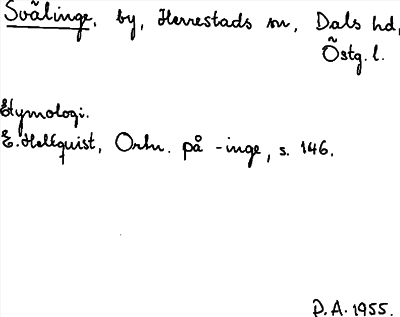 Svälinge, by, Herrestads sn, Dals hd,
Östg. l.
Etymologi.
E. Hellquist, Ortn. på -inge, s. 146.
P.A. 1955.